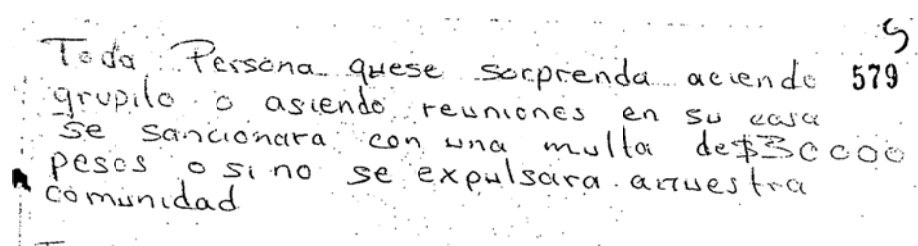 5
Toda Persona quese sorprenda aciendo 579
grupilo o asiendo reuniones en su casa
Se Sancionara con una multa de $30000
pesos o si no se expulsara annuestra
comunidad